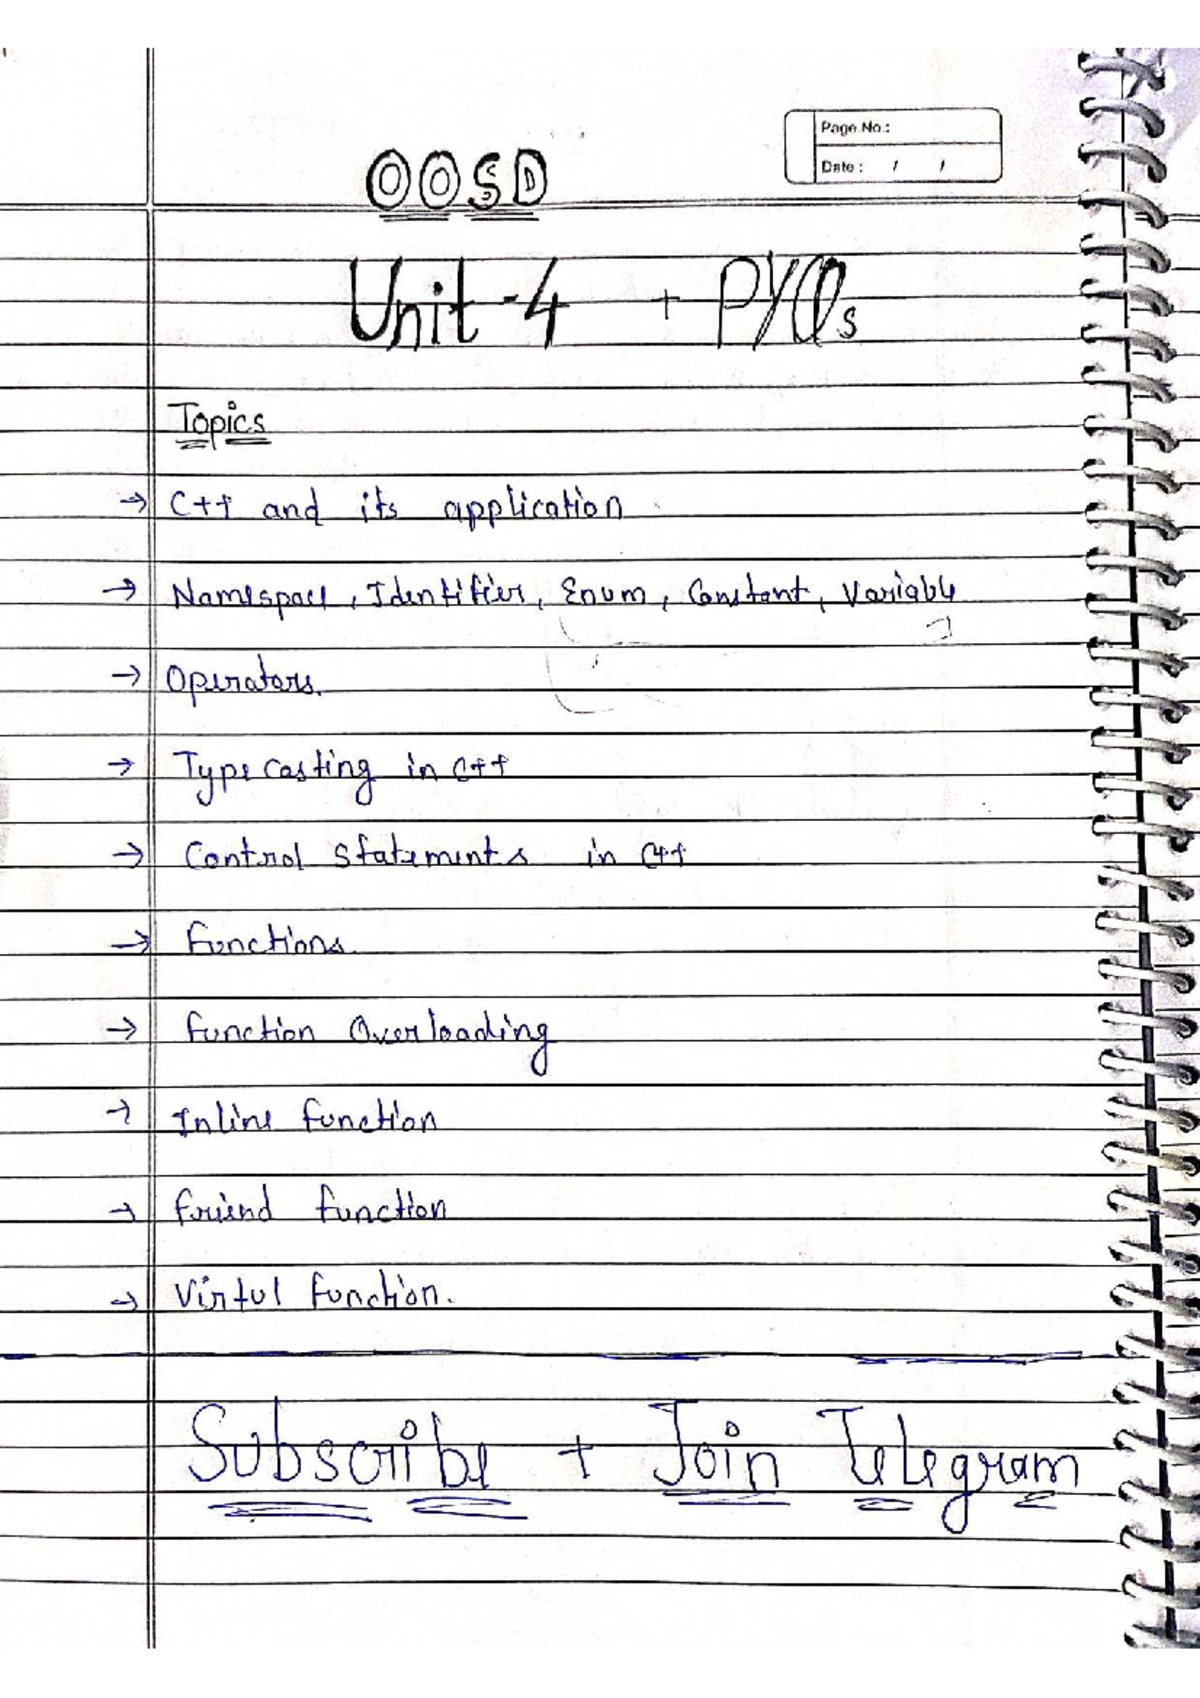 Page No.:
Date : / /
OOSD
Unit-4 + PYQs
Topics
→ C++ and its application
→ Namespace, Identifier, Enum, Constant, Variable
→ Operators.
→ Type casting in C++
→ Control Statements in C++
→ Functions.
→ Function Overloading
→ Inline function
→ Friend function
→ Virtul function.
Subscribe + Join Telegram